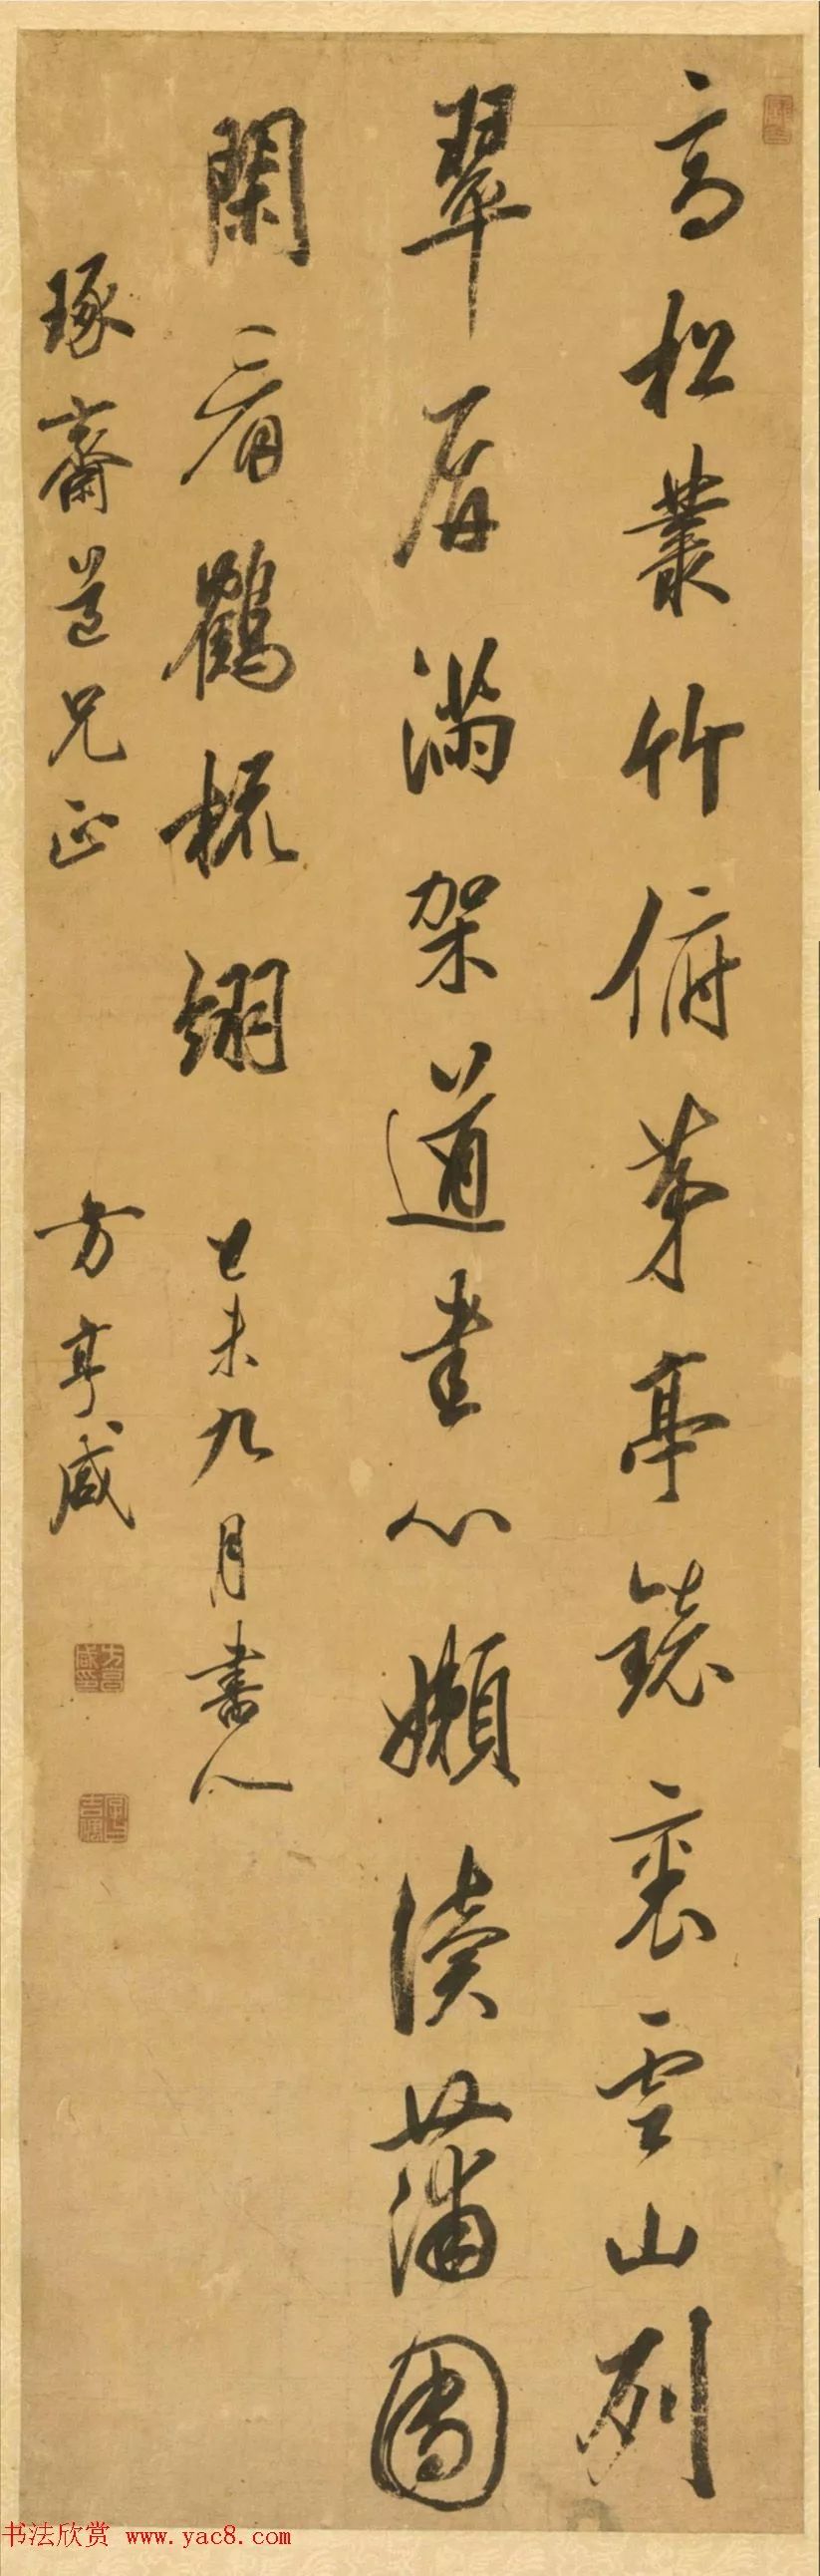 高松叢竹俯茅亭鏡裏雲山列
翠屏滿架道書心嬾讀蒲團
閑看鶴梳翎 己未九月書
琢齋道兄正 方亨咸
方亨咸印
書法欣賞 www.yac8.com